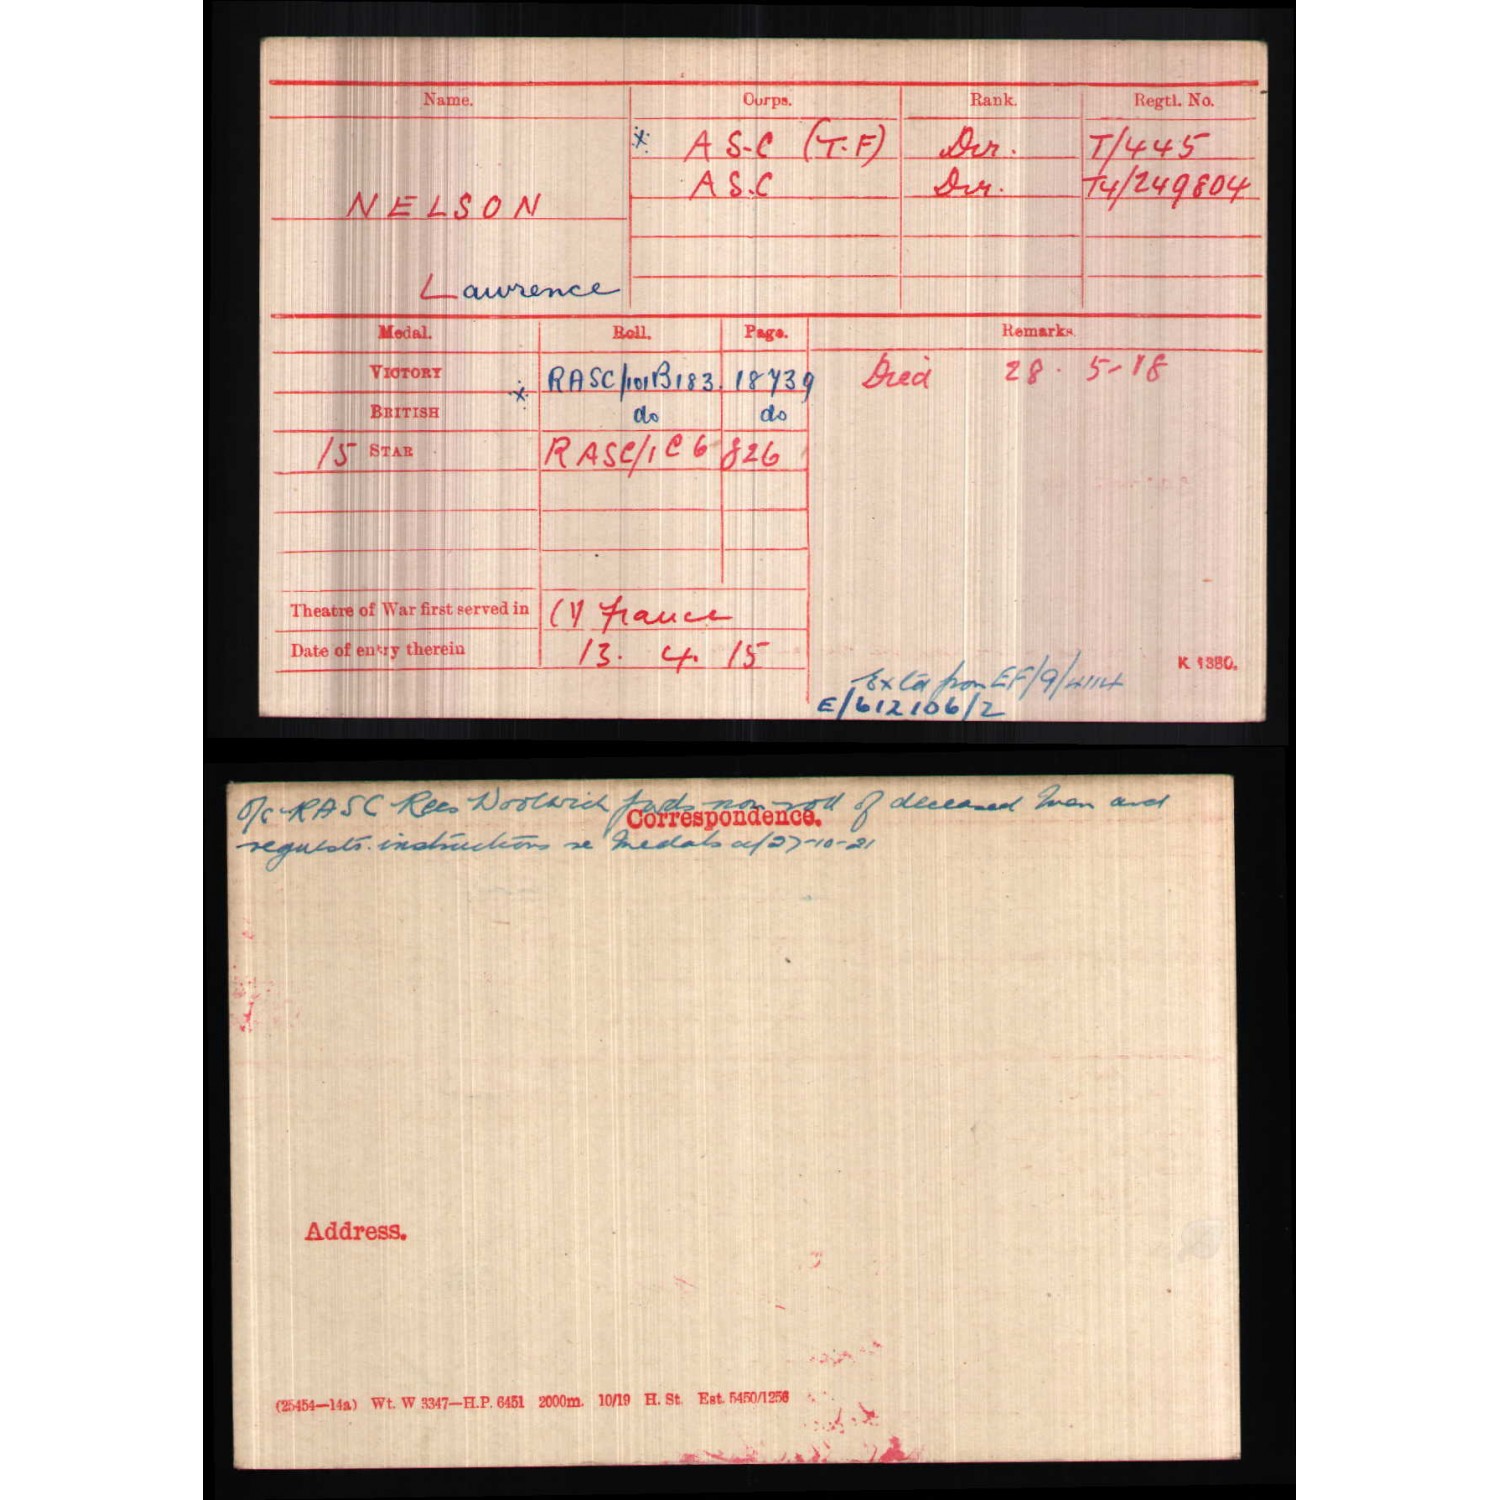 Name. Corps. Rank. Regtl. No.
* A S.C (T.F) Dvr. T/445
A S.C Dvr. T4/249804
NELSON
Lawrence
Medal. Roll. Page. Remarks.
VICTORY * RASC/101B183. 18739 Died 28. 5-18
BRITISH do do
15 STAR RASC/1C6 826
Theatre of War first served in (1) France
Date of entry therein 13. 4. 15
K 1380.
Extd from EF/9/4114
E/612106/2
O/c RASC Recs Woolwich fwds nom roll of deceased men and
Correspondence.
requests instructions re Medals d/27-10-21
Address.
(25454—14a) Wt. W 3347—H.P. 6451 2000m. 10/19 H. St. Est. 5450/1256